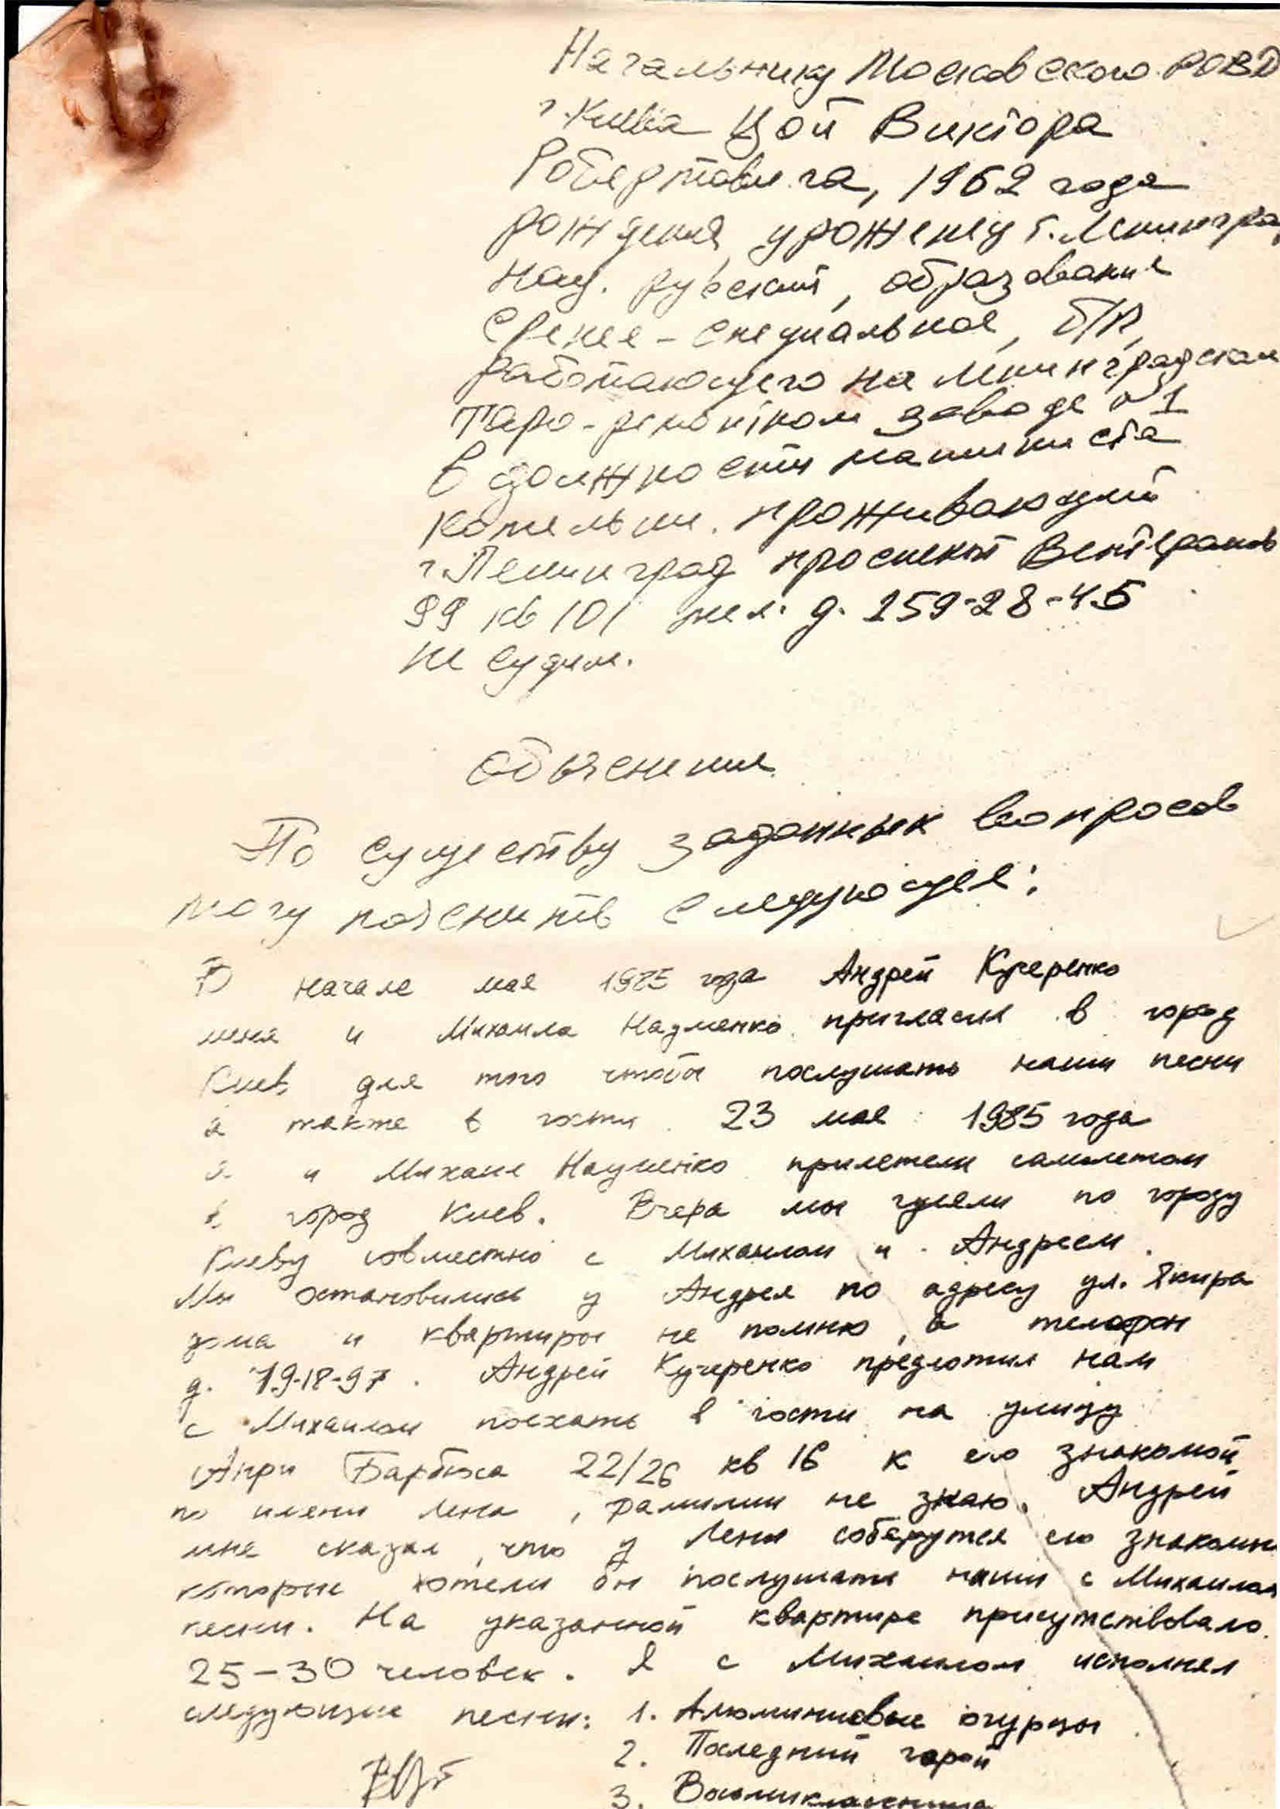 Начальнику Московского РОВД
г. Киева Цой Виктора
Робертовича, 1962 года
рождения, уроженец г. Ленингра
нац. русский, образование
средне-специальное, б/п,
работающего на Ленинградском
таро-ремонтном заводе №1
в должности машиниста
котельни. проживающий
г. Ленинград проспект Ветеранов
99 кв 101 тел. д. 259-28-45
не судим.
Объяснение
По существу заданных вопросов
могу пояснить следующее:
В начале мая 1985 года Андрей Кучеренко
меня и Михаила Науменко пригласил в город
Киев для того чтобы послушать наши песни
а также в гости. 23 мая 1985 года
я и Михаил Науменко прилетели самолетом
в город Киев. Вчера мы гуляли по городу
Киеву совместно с Михаилом и Андреем.
Мы остановились у Андрея по адресу ул. Якира
дома и квартиры не помню, а телефон
д. 19-18-97. Андрей Кучеренко предложил нам
с Михаилом поехать в гости на улицу
Анри Барбюса 22/26 кв 16 к его знакомой
по имени Лена, фамилии не знаю. Андрей
мне сказал, что у Лены соберутся его знакомы
которые хотели бы послушать наши с Михаилом
песни. На указанной квартире присутствовало
25-30 человек. Я с Михаилом исполнял
следующие песни: 1. Алюминиевые огурцы
2. Последний герой
3. Восьмиклассница